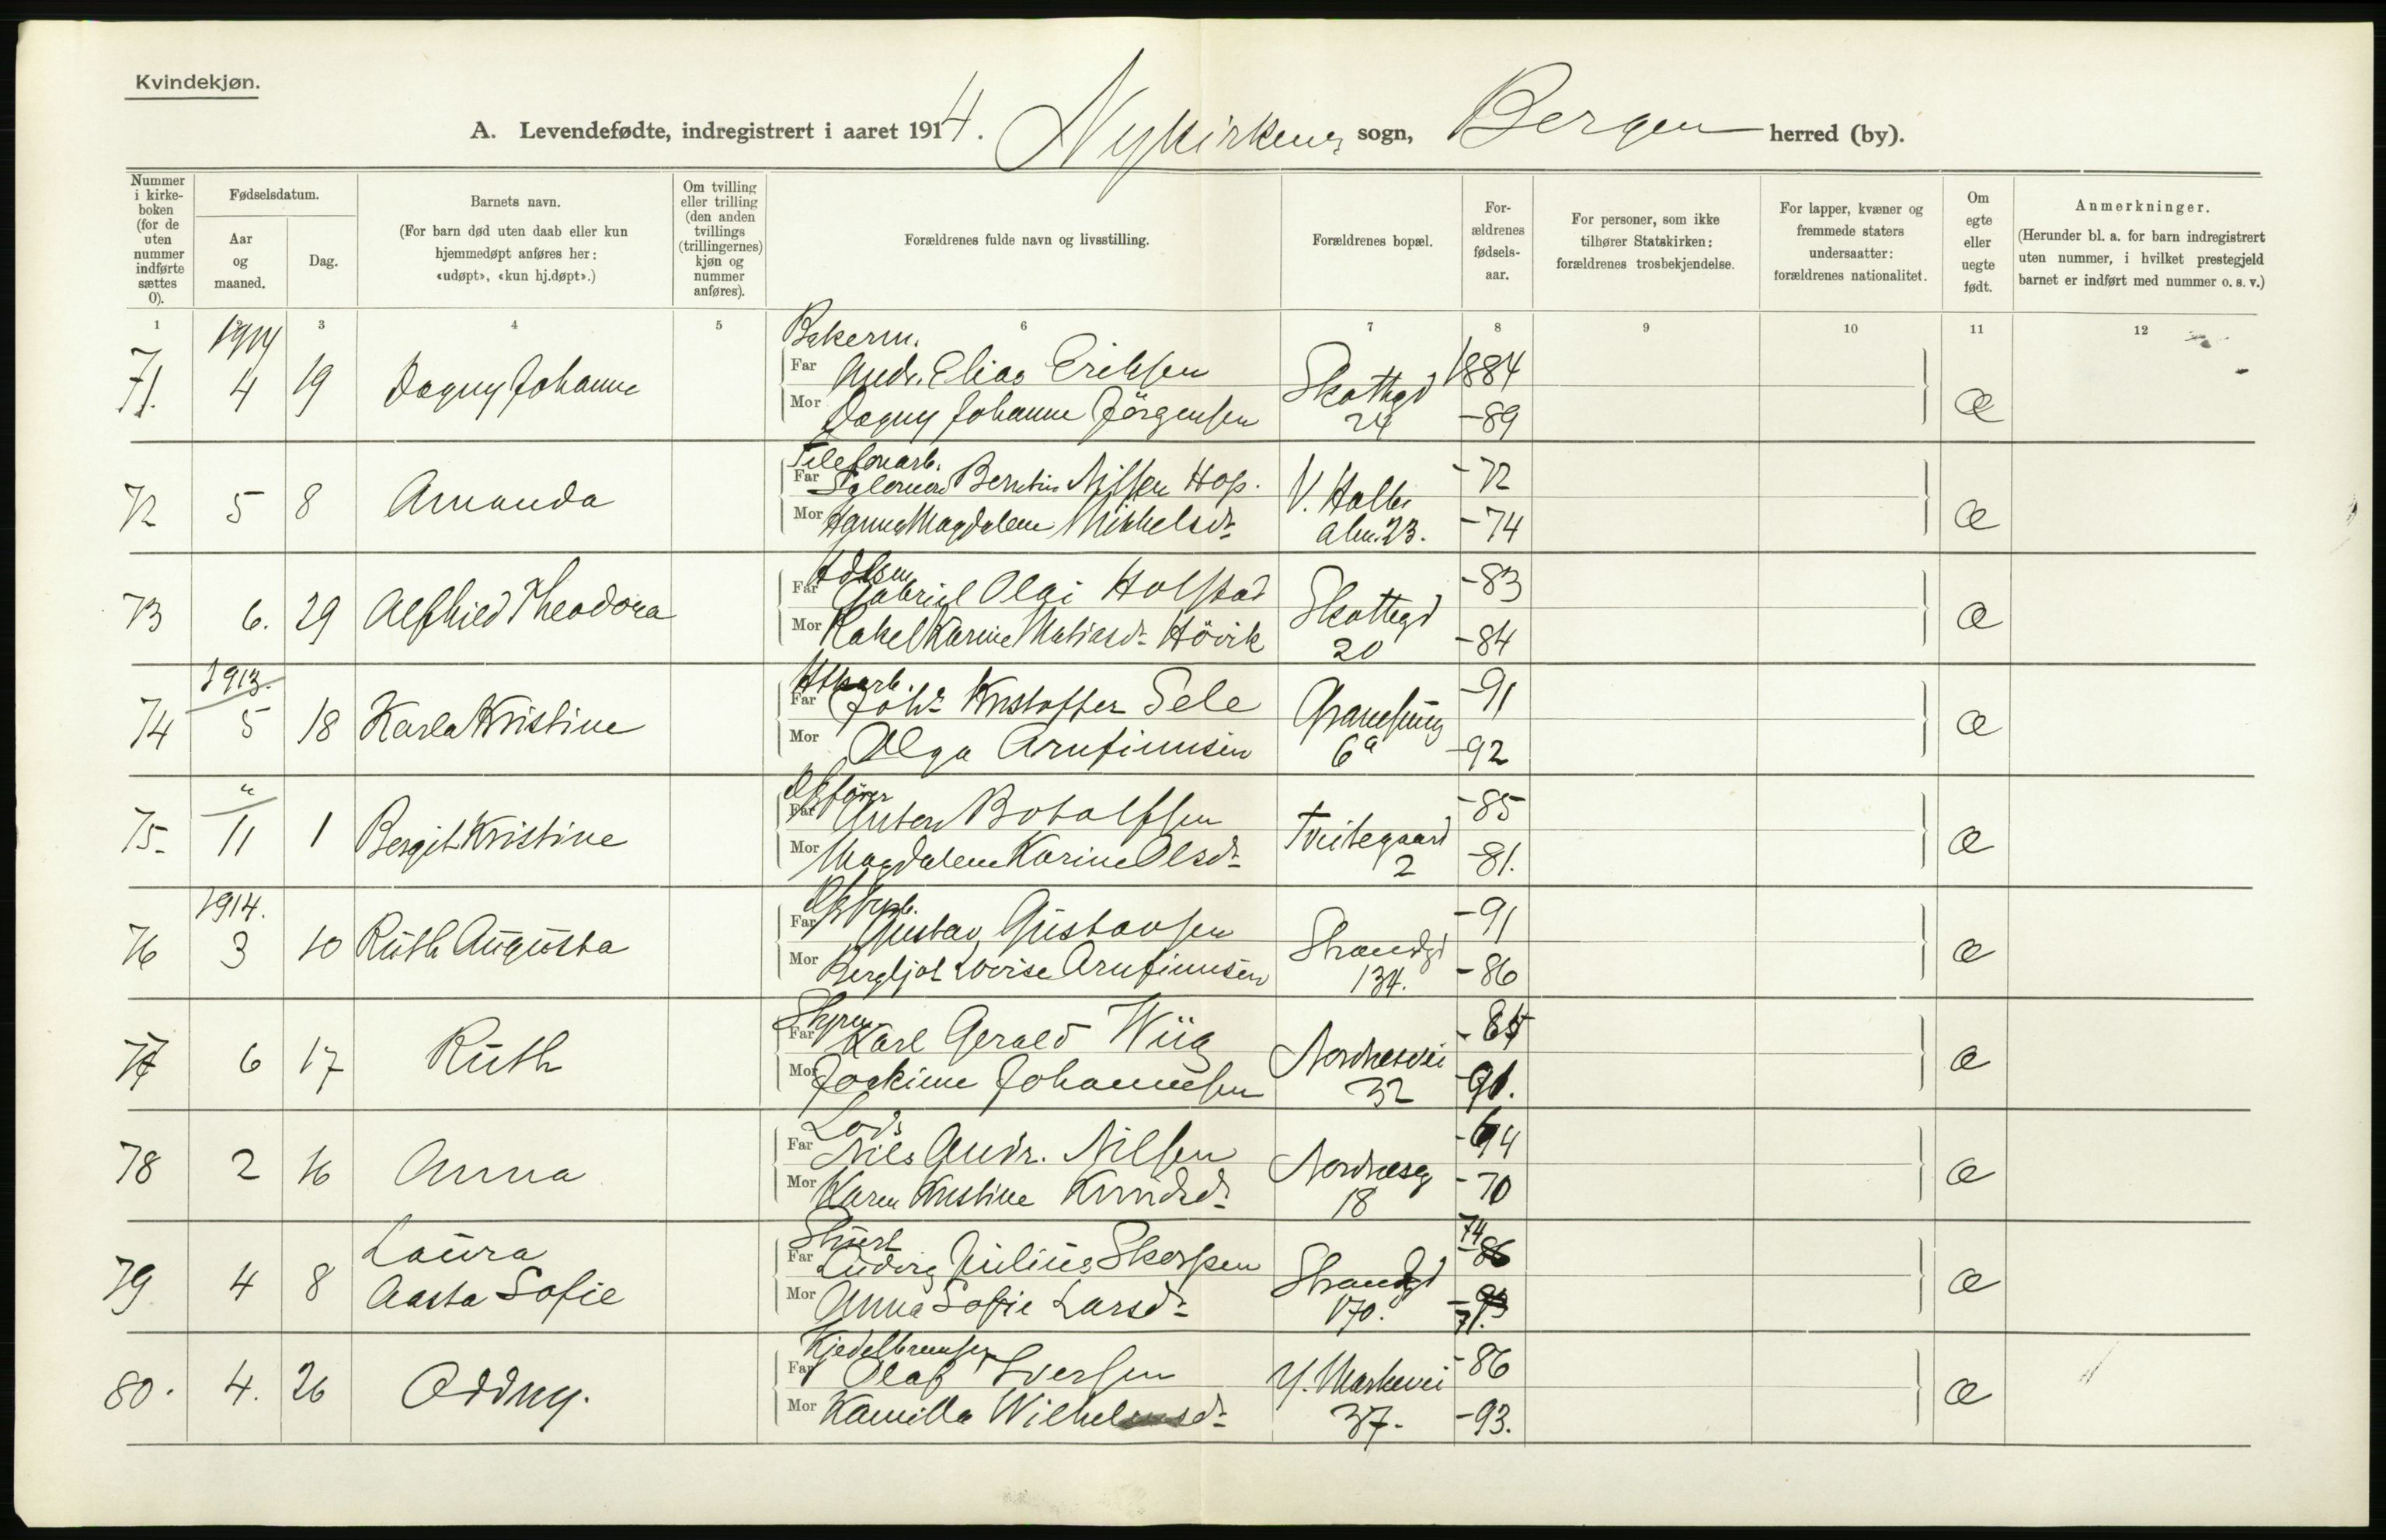 Kvindekjøn.
A. Levendefødte, indregistrert i aaret 1914. Nykirkens sogn, Bergen herred (by).
Nummer i kirke-boken (for de uten nummer indførte sættes 0).
Fødselsdatum.
Aar og maaned.
Dag.
Barnets navn.
(For barn død uten daab eller kun hjemmedøpt anføres her: «udøpt», «kun hj.døpt».)
Om tvilling eller trilling (den anden tvillings (trillingernes) kjøn og nummer anføres).
Forældrenes fulde navn og livsstilling.
Forældrenes bopæl.
For-ældrenes fødsels-aar.
For personer, som ikke tilhører Statskirken: forældrenes trosbekjendelse.
For lapper, kvæner og fremmede staters undersaatter: forældrenes nationalitet.
Om egte eller uegte født.
Anmerkninger.
(Herunder bl. a. for barn indregistrert uten nummer, i hvilket prestegjeld barnet er indført med nummer o. s. v.)
1 2 3 4 5 6 7 8 9 10 11 12
1914
Bakerm.
71. 4 19 Dagny Johanne Far Andr. Elias Eriksen Skottegd 1884 Æ
Mor Dagny Johanne Jörgensen 24 -89
Telefonarb.
72 5 8 Amanda Far Salomon Berntin Nilsen Hop. V. Holbi -72 Æ
Mor Hanna Magdalene Mikkelsdr. alm. 23. -74
73 6. 29 Alfhild Theodora Far Gabriel Olai Holstad Skottegd -83 Æ
Mor Rakel Karine Matiasdr. Hövik 20 -84
1913.
74 5 18 Karla Kristine Far Joh. Kristoffer Sele -91 Æ
Mor Olga Arnfinnsen 6a -92
"
75. 11 1 Bergit Kristine Far Anton Botolfsen Tveitegaard -85 Æ
Mor Magdalene Karine Olsdr. 2 -81.
1914.
76 3 10 Ruth Augusta Far Gustav Gustavsen Strandgd -91 Æ
Mor Bergljot Lovise Arnfinnsen 134. -86
77 6 17 Ruth Far Karl Gerald Wiig Nordnesvei Æ
Mor Joakime Johannesen 32 -91.
Lods
78 2 16 Anna Far Nils Andr. Nilsen Nordnesg Æ
Mor Karen Kristine Knudsdr. 18 -70
Stuert
79 4 8 Laura Far Ludvig Julius Skorpen Strandgd 74 Æ
Aasta Sofie Mor Anna Sofie Larsdr. 170. 71.
80. 4. 26 Oddny. Far Olaf Iversen Y. Markevei -86 Æ
Mor Kamilla Wilhelmsdr. 37. -93.